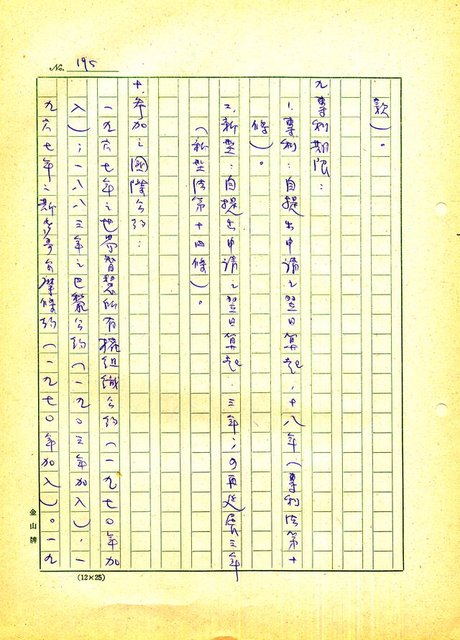 No. 195
款）。
九專利期限：
1. 專利：自提出申請之翌日算起，十八年（專利法第十
條）。
2. 新型：自提出申請之翌日算起，三年，可再延展三年
（新型法第十四條）。
十. 參加之國際公約：
一九六七年之世界智慧所有權組織公約（一九七〇年加
入）；一八八三年之巴黎公約（一九〇三年加入）；一
九六七年之斯德哥爾摩條約（一九七〇年加入）。一九
金山牌
(12×25)